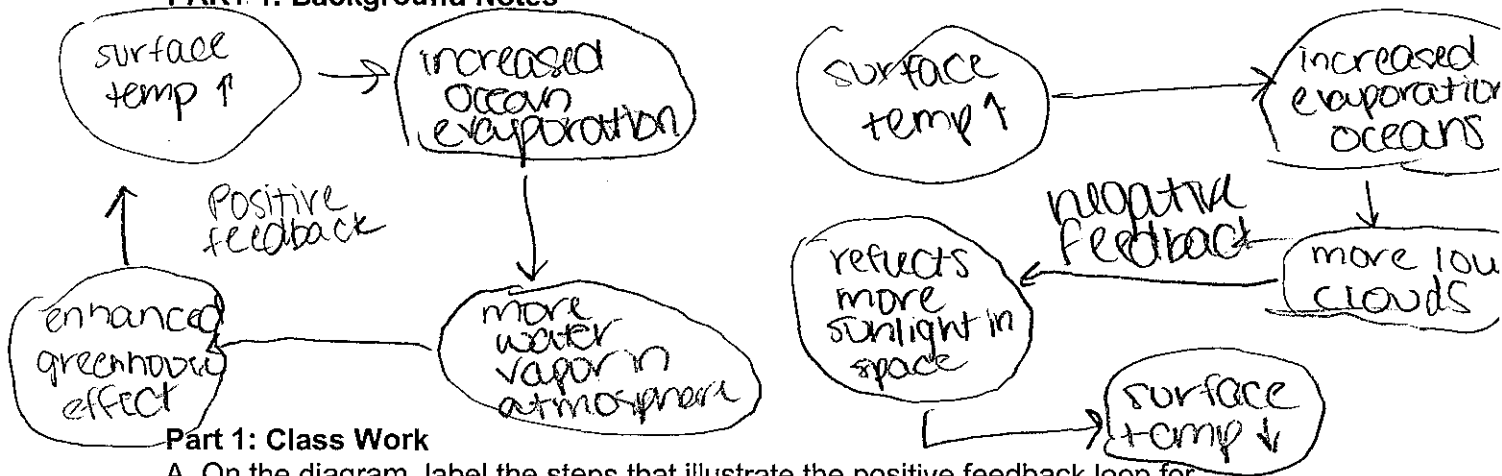 PART 1: Background Notes
surface
temp ↑
increased
ocean
evaporation
more
water
vapor in
atmosphere
enhanced
greenhouse
effect
Positive
feedback
surface
temp ↑
increased
evaporation
oceans
more low
clouds
reflects
more
sunlight in
space
surface
temp ↓
negative
feedback
Part 1: Class Work
A. On the diagram, label the steps that illustrate the positive feedback loop for